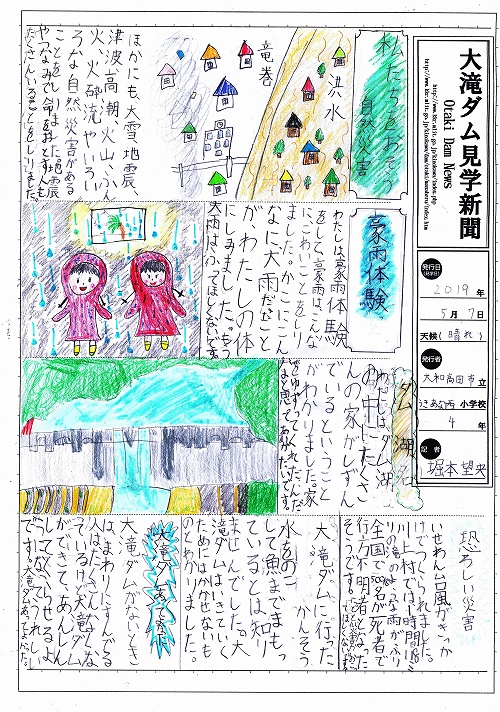 大滝ダム見学新聞
Otaki Dam News
発行日
(見学日)
2019年
5月7日
天候(晴れ)
発行者
大和高田市立
うきあなの西小学校
4年
記者
堀本望央
私たちをおそう
自然災害
洪水
竜巻
ほかにも大雪、地震、
津波、高潮、火山ふん
火、火砕流やいろい
ろな自然災害がある
ことをしりました。地震
やつなみで命をおとす人も
たくさんいることをしりました。
豪雨体験
わたしは、豪雨体験
をして、豪雨はこんな
にこわいことをしり
ました。かこにこん
なに大雨だったこと
が、わたしの体
にしみました。もう
大雨は、ふってほしくないです。
ダム湖名
わたしは、ダム湖
の中にたくさ
んの家がしずん
でいるということ
がわかりました。家
をゆずってくれた
恐ろしい災害
いせわん台風がきっか
けでつくられました。
川上村では1時間に
りの滝のような雨がふり
全国で5000名が死者で
行方不明者となった
そうです。
大滝ダムに行った
かんそう
水をのこ
して魚までまもっ
ていることは知り
ませんでした。大
滝ダムはいきていく
ためにはかかせないも
のとわかりました。
大滝ダムがないとき
は、まわりにすんでる
人はたいへんなんだな
っているけど大滝ダム
ができて、あんしん
してくらせるよ